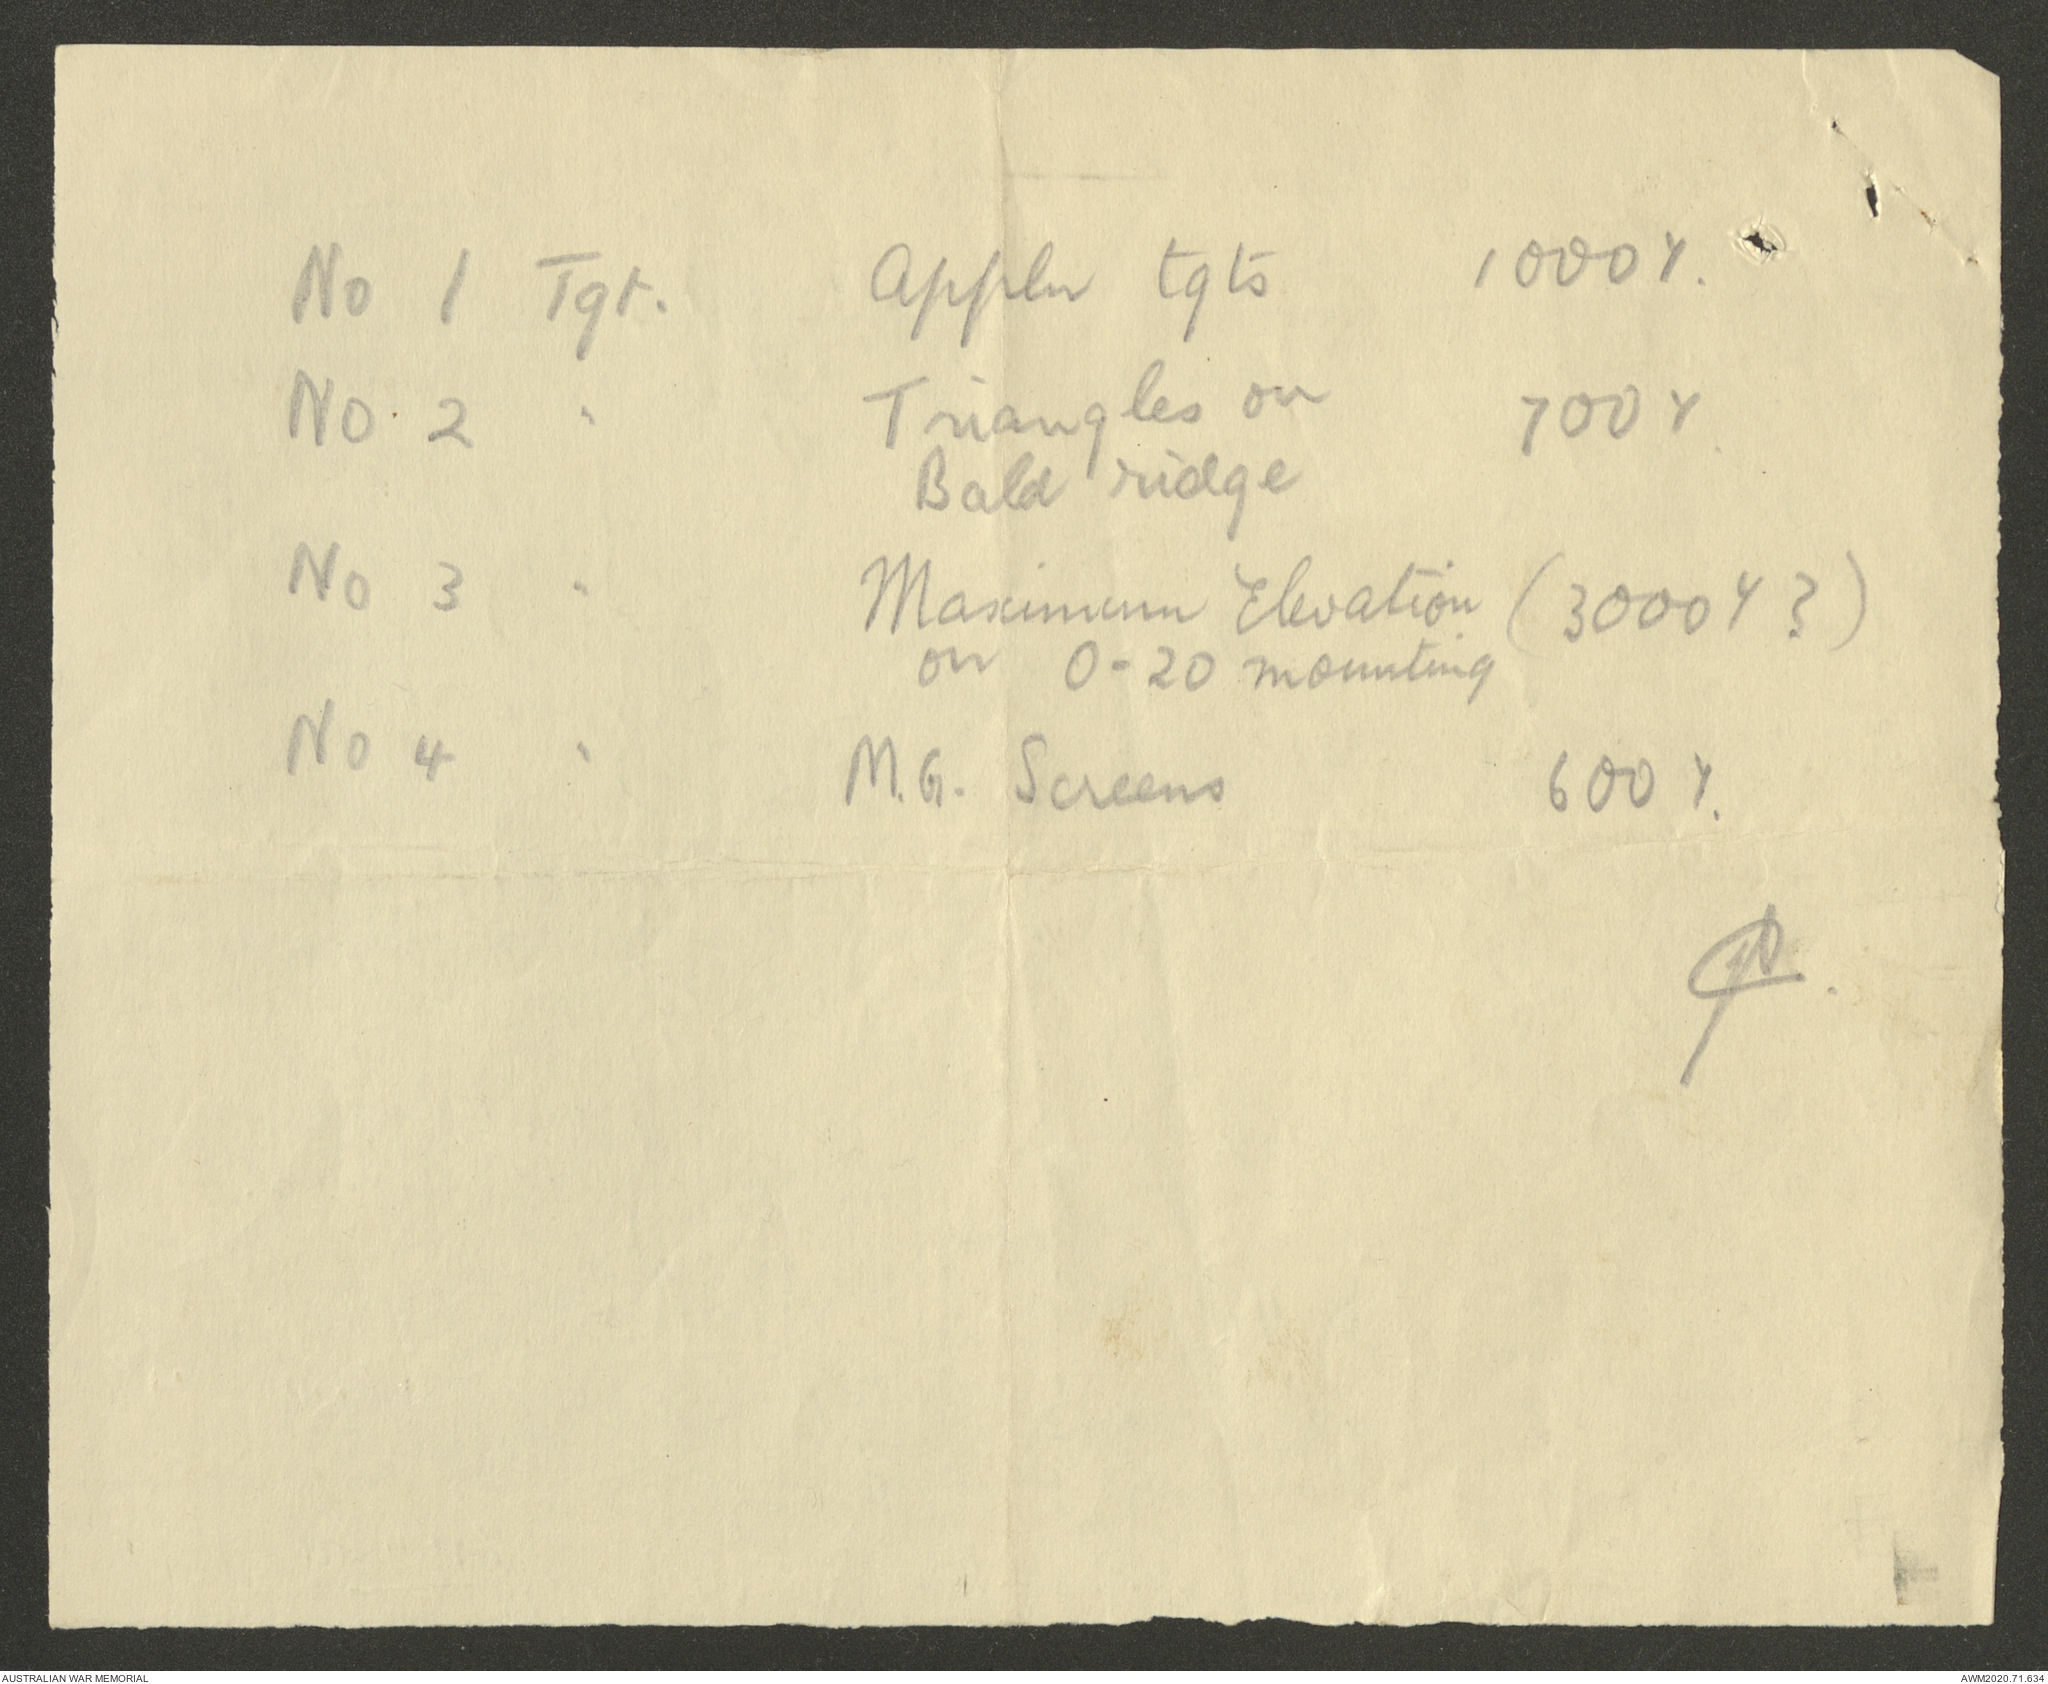 No 1 Tgt. Appln tgts 1000 Y.
No 2 " Triangles on 700 Y.
Bald ridge
No 3 " Maximum Elevation (3000 Y ?)
on 0-20 mounting
No 4 " M.G. Screens 600 Y.
AUSTRALIAN WAR MEMORIAL AWM2020.71.634